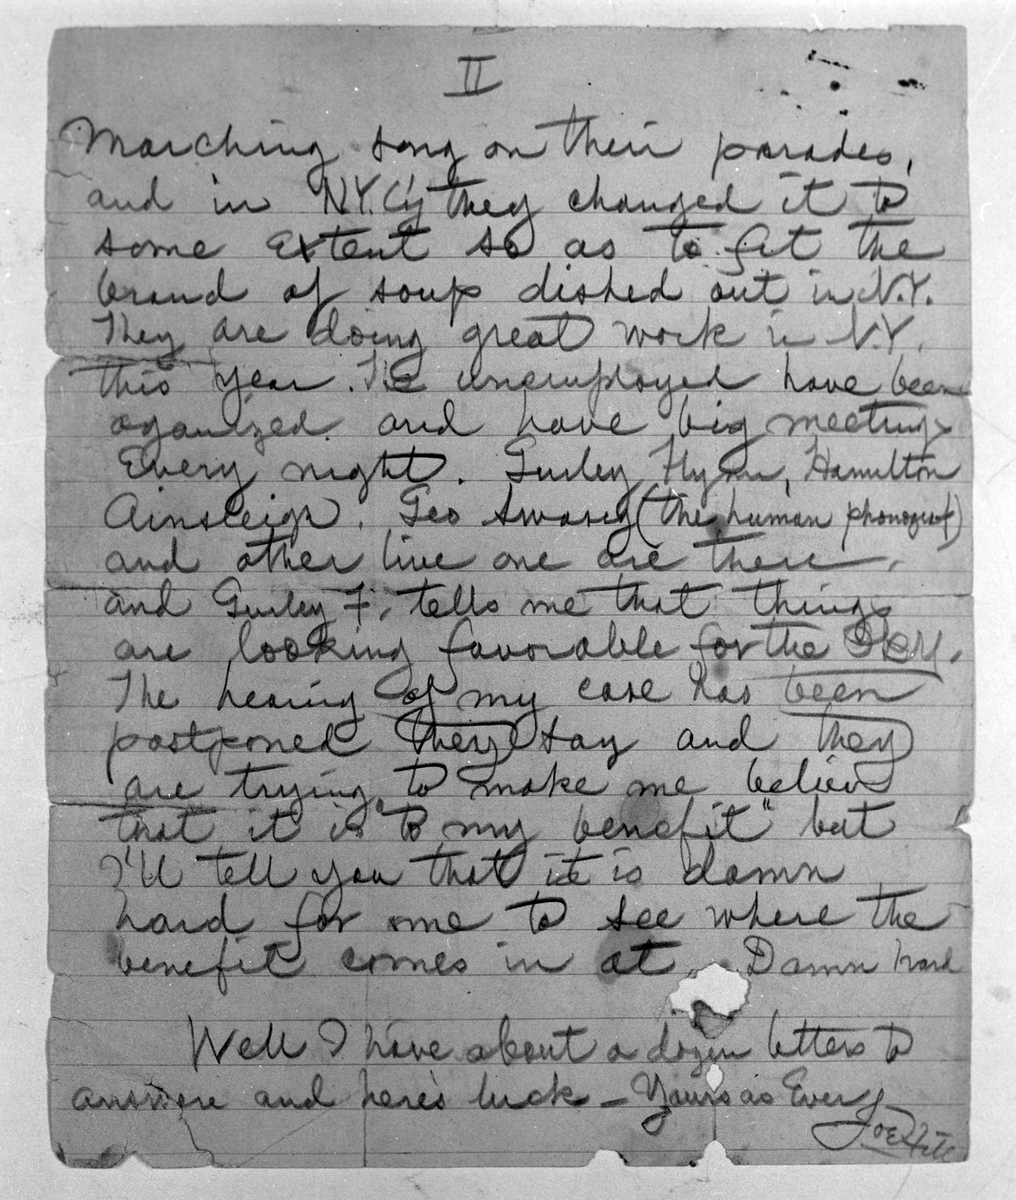 II
Marching song on their parades,
and in N.Y. City they changed it to
some Extent so as to fit the
brand of soup dished out in N.Y.
They are doing great work in N.Y.
this year. The unemployed have been
oganized and have big meetings
Every night. Gurley Flynn, Hamilton
Ainsleigh. Geo Swasey (the human phonograf)
and other live one are there.
and Gurley F, tells me that things
are looking favorable for the O.B.U.
The hearing of my case has been
postponed they say and they
are trying to make me believe
that it is "to my benefit" but
I'll tell you that it is damn
hard for me to see where the
benefit comes in at. Damn hard
Well I have about a dozen letters to
answere and here's luck – Yours as Ever
Joe Hill